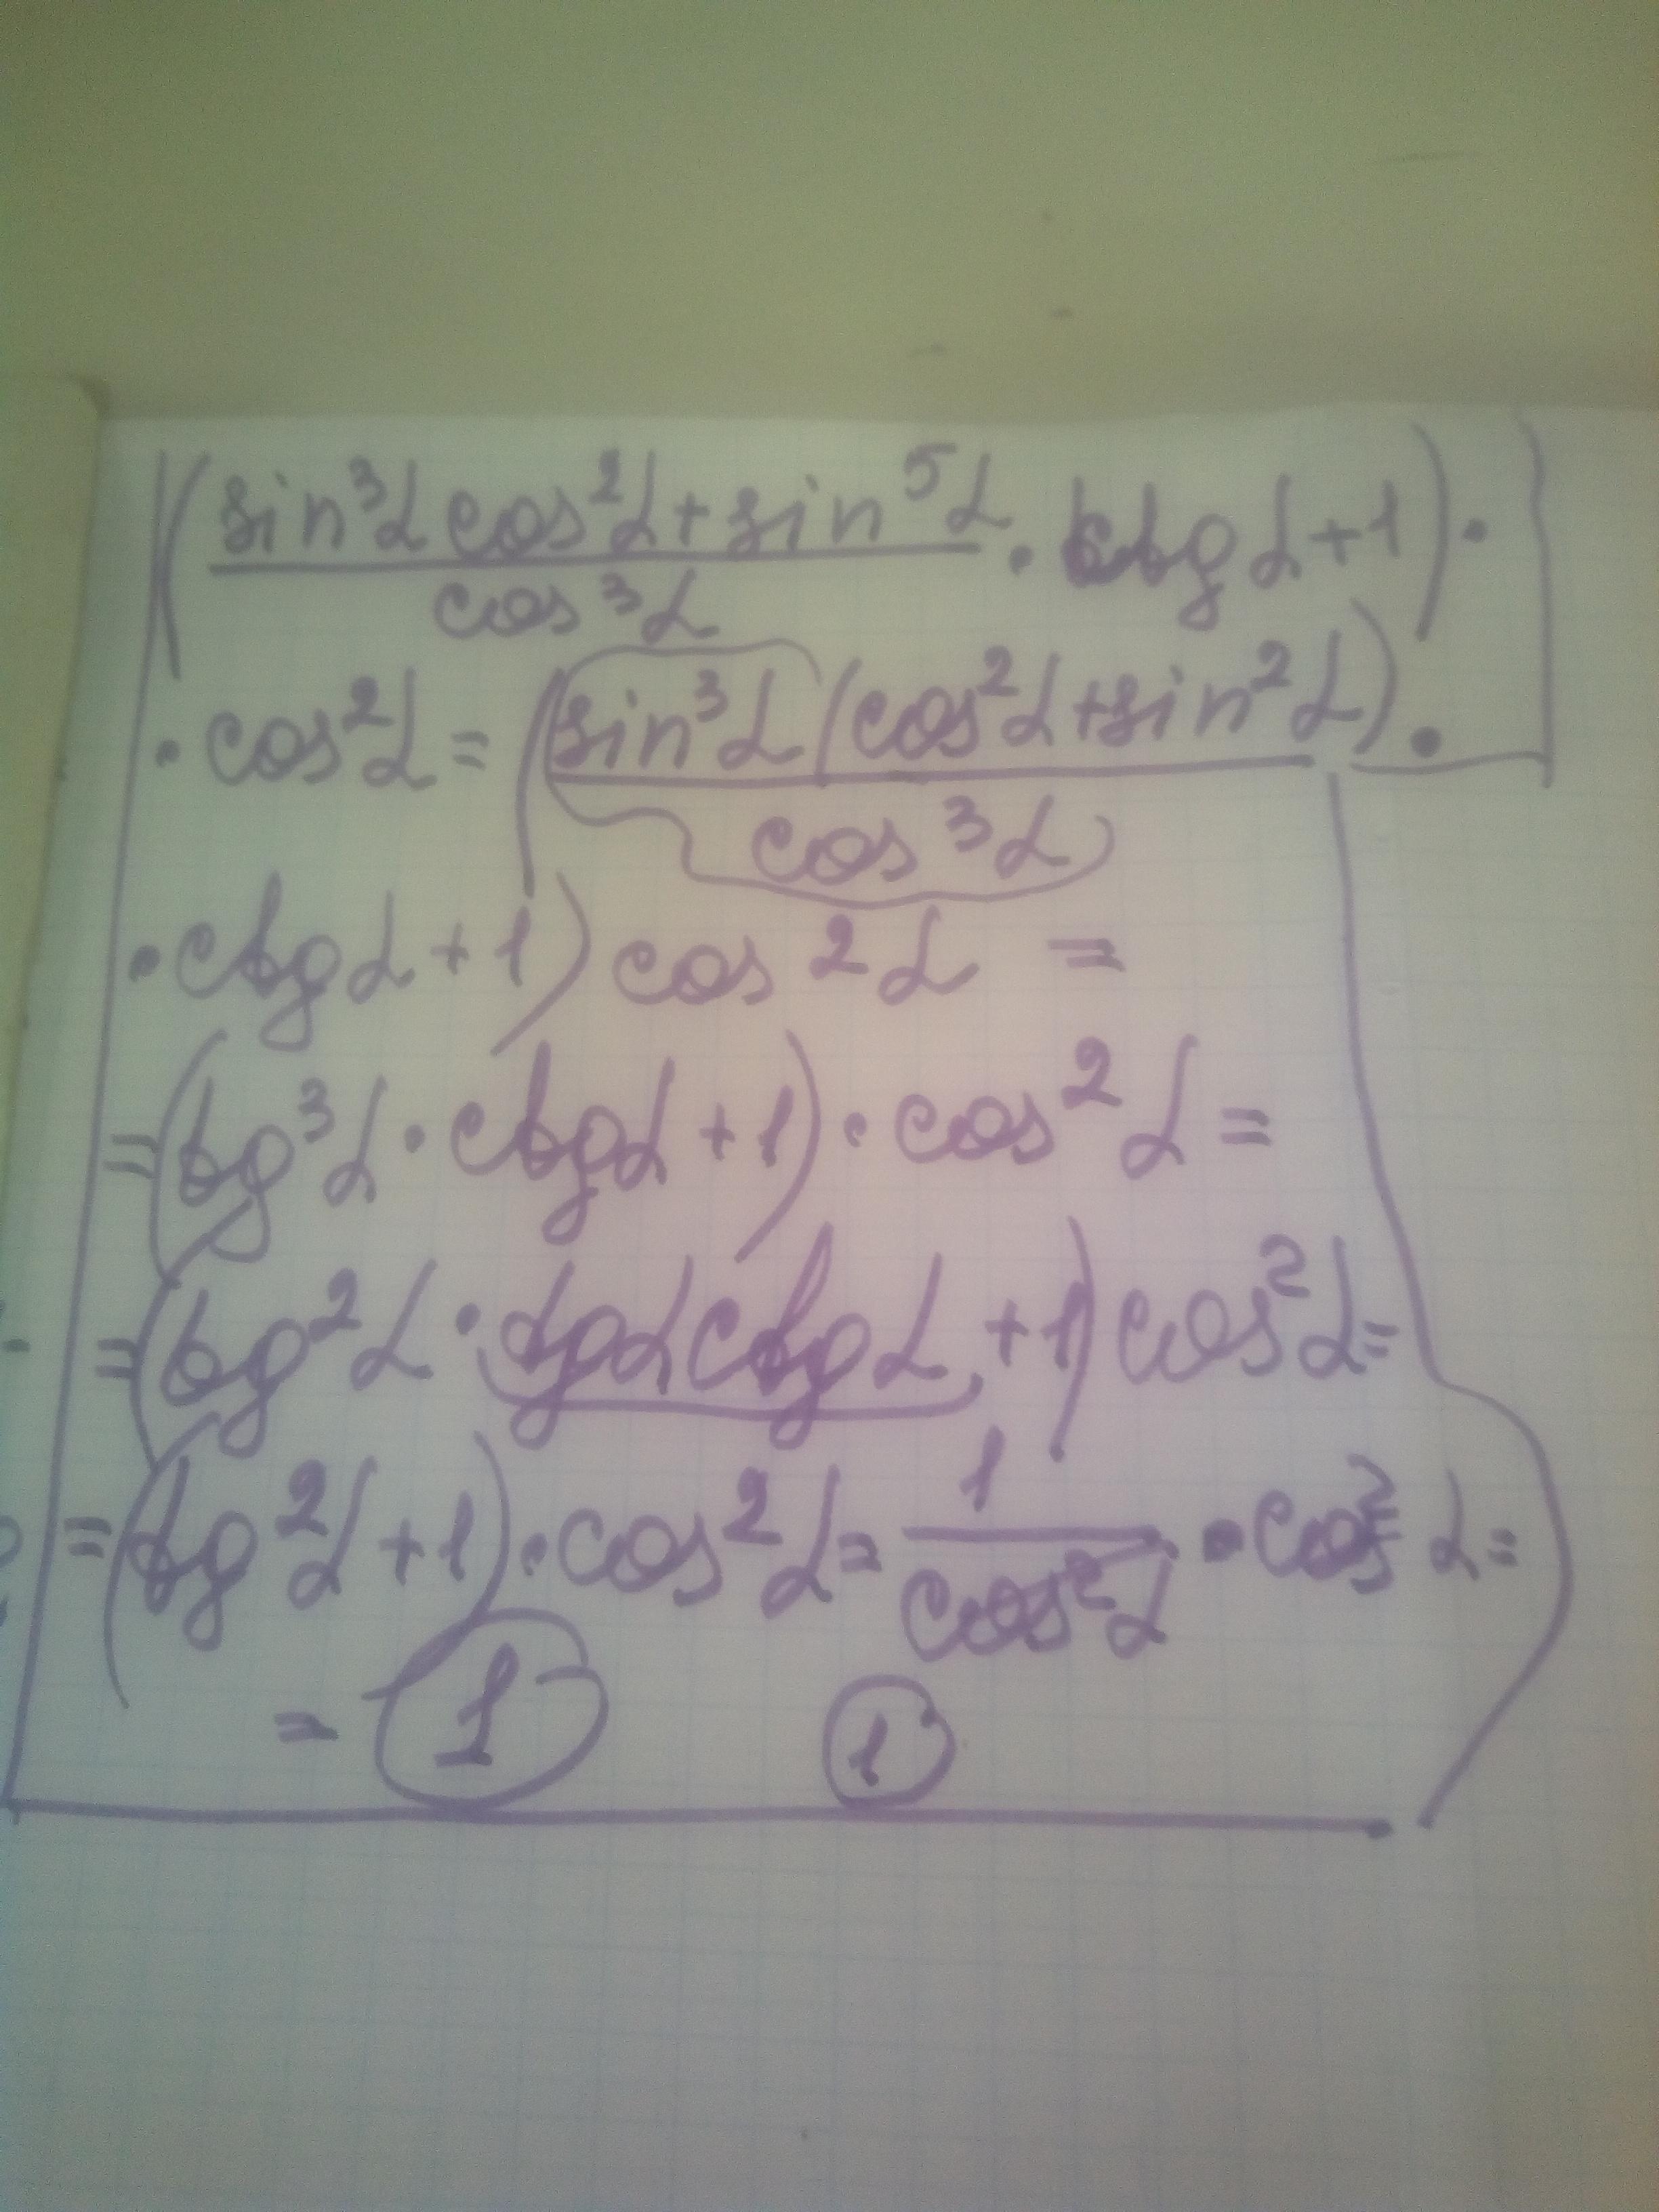 (sin³α cos²α + sin⁵α / cos³α · ctgα + 1) ·
· cos²α = (sin³α (cos²α + sin²α) / cos³α ·
· ctgα + 1) cos²α =
= (tg³α · ctgα + 1) · cos²α =
= (tg²α · tgα ctgα + 1) cos²α =
= (tg²α + 1) · cos²α = 1 / cos²α · cos²α =
= 1 1